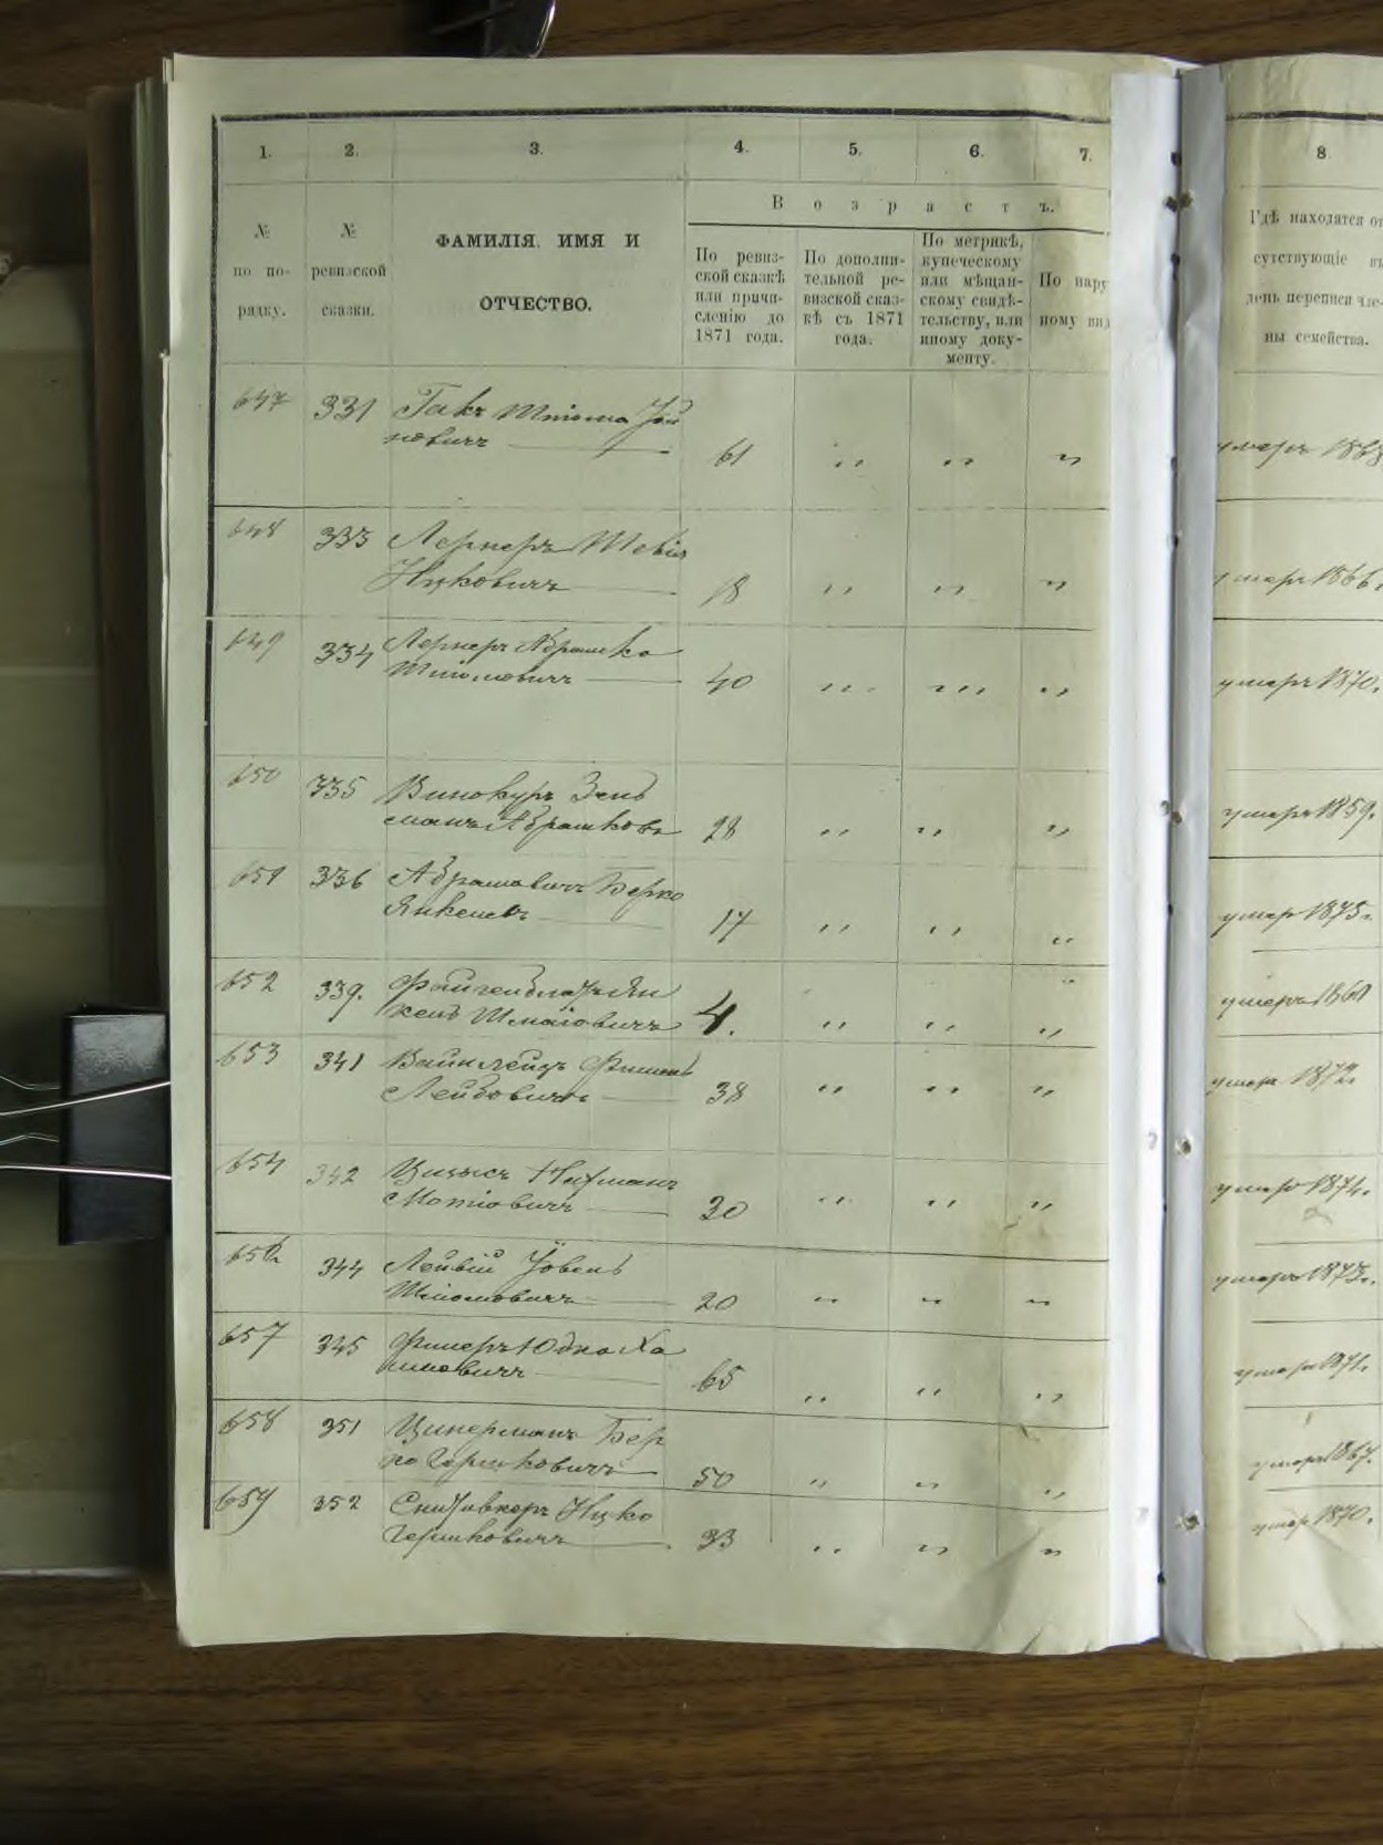 1. 2. 3. 4. 5. 6. 7. 8.
В о з р а с т ъ.
№
по по-
рядку.
№
ревизской
сказки.
ФАМИЛІЯ, ИМЯ И
ОТЧЕСТВО.
По ревиз-
ской сказкѣ
или причи-
сленію до
1871 года.
По дополни-
тельной ре-
визской сказ-
кѣ съ 1871
года.
По метрикѣ,
купеческому
или мѣщан-
скому свидѣ-
тельству, или
иному доку-
менту.
По нару
ному вид
Гдѣ находятся от
сутствующіе въ
день переписи чле-
ны семейства.
647 331 Гакъ Шліома
новичъ 61 " " " умеръ
648 333 Лернеръ Шевія
Ицковичъ 18 " " " умеръ 1866.
649 334 Лернеръ Абрашко
Шліомовичъ 40 " " " умеръ 1870.
650 335 Винокуръ Зель
манъ Абрашков 28 " " " умеръ 1859.
651 336 Абрамовичъ Берко
Янкелев 17 " " " умер 1875.
652 339. Файгенблатъ Ян
кель Шмаіовичъ 4. " " " умеръ
653 341 Вайнлейдъ Фишель
Лейбовичъ 38 " " " умер 1872.
654 342 Нахманъ
Мотіовичъ 30 " " " умеръ 1874.
656 344 Лейвій Іовель
Шліомовичъ 20 " " " умеръ 1873.
657 345 Фишеръ Юдка Ха
имовичъ 65 " " " умеръ 1871.
658 351 Цимерманъ Бер
ко Гершковичъ 50 " " " умеръ 1867.
659 352 Ицко
Гершковичъ 33 " " " умер 1870.